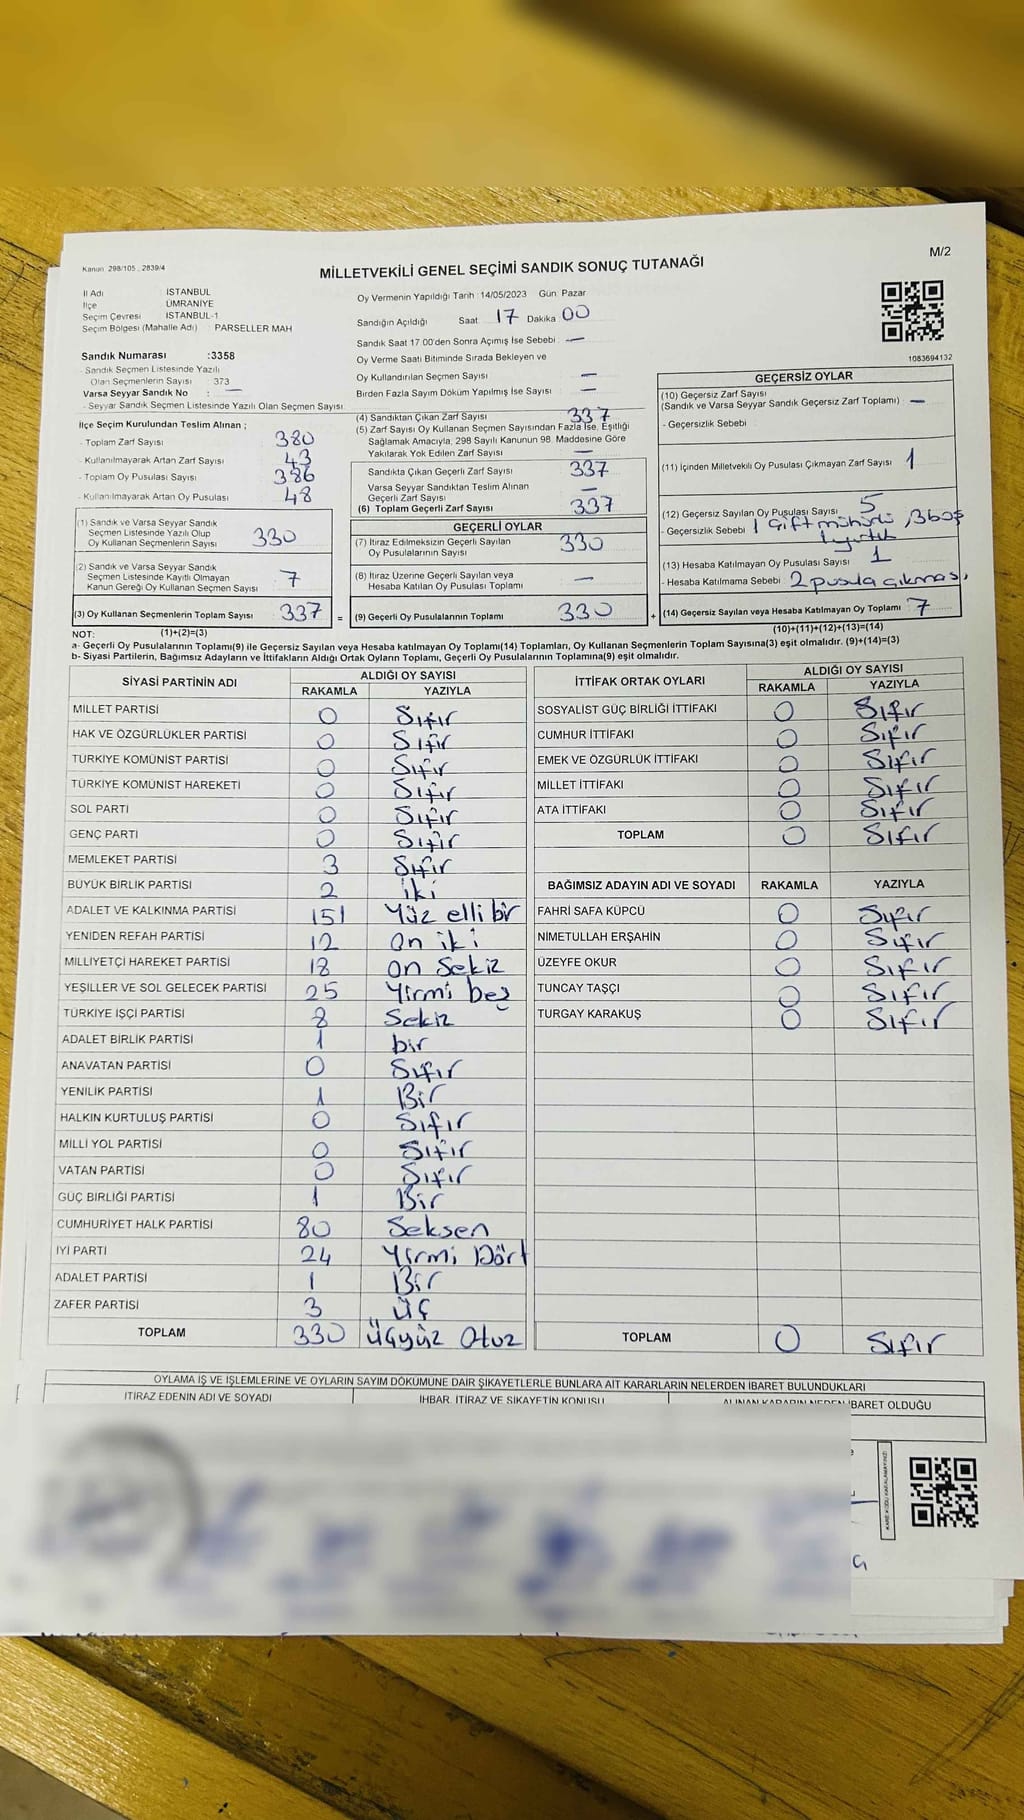 M/2
Kanun 298/105 , 2839/4
MİLLETVEKİLİ GENEL SEÇİMİ SANDIK SONUÇ TUTANAĞI
İl Adı İSTANBUL
İlçe ÜMRANİYE
Seçim Çevresi İSTANBUL-1
Seçim Bölgesi (Mahalle Adı) PARSELLER MAH
Sandık Numarası :3358
- Sandık Seçmen Listesinde Yazılı
Olan Seçmenlerin Sayısı : 373
Varsa Seyyar Sandık No : —
- Seyyar Sandık Seçmen Listesinde Yazılı Olan Seçmen Sayısı
İlçe Seçim Kurulundan Teslim Alınan ;
- Toplam Zarf Sayısı 380
- Kullanılmayarak Artan Zarf Sayısı 43
- Toplam Oy Pusulası Sayısı 386
- Kullanılmayarak Artan Oy Pusulası 48
(1) Sandık ve Varsa Seyyar Sandık
Seçmen Listesinde Yazılı Olup
Oy Kullanan Seçmenlerin Sayısı 330
(2) Sandık ve Varsa Seyyar Sandık
Seçmen Listesinde Kayıtlı Olmayan
Kanun Gereği Oy Kullanan Seçmen Sayısı 7
(3) Oy Kullanan Seçmenlerin Toplam Sayısı 337 =
Oy Vermenin Yapıldığı Tarih :14/05/2023 Gün: Pazar
Sandığın Açıldığı Saat: 17 Dakika 00
Sandık Saat 17.00'den Sonra Açımış İse Sebebi : —
Oy Verme Saati Bitiminde Sırada Bekleyen ve
Oy Kullandırılan Seçmen Sayısı —
Birden Fazla Sayım Döküm Yapılmış İse Sayısı —
(4) Sandıktan Çıkan Zarf Sayısı 337
(5) Zarf Sayısı Oy Kullanan Seçmen Sayısından Fazla İse, Eşitliği
Sağlamak Amacıyla, 298 Sayılı Kanunun 98. Maddesine Göre
Yakılarak Yok Edilen Zarf Sayısı —
Sandıkta Çıkan Geçerli Zarf Sayısı 337
Varsa Seyyar Sandıktan Teslim Alınan
Geçerli Zarf Sayısı —
(6) Toplam Geçerli Zarf Sayısı 337
GEÇERLİ OYLAR
(7) İtiraz Edilmeksizin Geçerli Sayılan
Oy Pusulalarının Sayısı 330
(8) İtiraz Üzerine Geçerli Sayılan veya
Hesaba Katılan Oy Pusulası Toplamı —
(9) Geçerli Oy Pusulalarının Toplamı 330 +
1083694132
GEÇERSİZ OYLAR
(10) Geçersiz Zarf Sayısı
(Sandık ve Varsa Seyyar Sandık Geçersiz Zarf Toplamı) —
- Geçersizlik Sebebi
(11) İçinden Milletvekili Oy Pusulası Çıkmayan Zarf Sayısı 1
(12) Geçersiz Sayılan Oy Pusulası Sayısı 5
- Geçersizlik Sebebi 1 Çift mühürlü, 3 boş
1 yırtık
(13) Hesaba Katılmayan Oy Pusulası Sayısı 1
- Hesaba Katılmama Sebebi 2 pusula çıkması
(14) Geçersiz Sayılan veya Hesaba Katılmayan Oy Toplamı 7
NOT: (1)+(2)=(3) (10)+(11)+(12)+(13)=(14)
a- Geçerli Oy Pusulalarının Toplamı(9) ile Geçersiz Sayılan veya Hesaba katılmayan Oy Toplamı(14) Toplamları, Oy Kullanan Seçmenlerin Toplam Sayısına(3) eşit olmalıdır. (9)+(14)=(3)
b- Siyasi Partilerin, Bağımsız Adayların ve İttifakların Aldığı Ortak Oyların Toplamı, Geçerli Oy Pusulalarının Toplamına(9) eşit olmalıdır.
SİYASİ PARTİNİN ADI ALDIĞI OY SAYISI
RAKAMLA YAZIYLA
MİLLET PARTİSİ 0 Sıfır
HAK VE ÖZGÜRLÜKLER PARTİSİ 0 Sıfır
TÜRKİYE KOMÜNİST PARTİSİ 0 Sıfır
TÜRKİYE KOMÜNİST HAREKETİ 0 Sıfır
SOL PARTİ 0 Sıfır
GENÇ PARTİ 0 Sıfır
MEMLEKET PARTİSİ 3 Sıfır
BÜYÜK BİRLİK PARTİSİ 2 iki
ADALET VE KALKINMA PARTİSİ 151 Yüz elli bir
YENİDEN REFAH PARTİSİ 12 On iki
MİLLİYETÇİ HAREKET PARTİSİ 18 On Sekiz
YEŞİLLER VE SOL GELECEK PARTİSİ 25 Yirmi beş
TÜRKİYE İŞÇİ PARTİSİ 8 Sekiz
ADALET BİRLİK PARTİSİ 1 bir
ANAVATAN PARTİSİ 0 Sıfır
YENİLİK PARTİSİ 1 Bir
HALKIN KURTULUŞ PARTİSİ 0 Sıfır
MİLLİ YOL PARTİSİ 0 Sıfır
VATAN PARTİSİ 0 Sıfır
GÜÇ BİRLİĞİ PARTİSİ 1 Bir
CUMHURİYET HALK PARTİSİ 80 Seksen
İYİ PARTİ 24 Yirmi Dört
ADALET PARTİSİ 1 Bir
ZAFER PARTİSİ 3 Üç
TOPLAM 330 Üçyüz Otuz
İTTİFAK ORTAK OYLARI ALDIĞI OY SAYISI
RAKAMLA YAZIYLA
SOSYALİST GÜÇ BİRLİĞİ İTTİFAKI 0 Sıfır
CUMHUR İTTİFAKI 0 Sıfır
EMEK VE ÖZGÜRLÜK İTTİFAKI 0 Sıfır
MİLLET İTTİFAKI 0 Sıfır
ATA İTTİFAKI 0 Sıfır
TOPLAM 0 Sıfır
BAĞIMSIZ ADAYIN ADI VE SOYADI RAKAMLA YAZIYLA
FAHRİ SAFA KÜPCÜ 0 Sıfır
NİMETULLAH ERŞAHİN 0 Sıfır
ÜZEYFE OKUR 0 Sıfır
TUNCAY TAŞÇI 0 Sıfır
TURGAY KARAKUŞ 0 Sıfır
TOPLAM 0 Sıfır
OYLAMA İŞ VE İŞLEMLERİNE VE OYLARIN SAYIM DÖKÜMÜNE DAİR ŞİKAYETLERLE BUNLARA AİT KARARLARIN NELERDEN İBARET BULUNDUKLARI
İTİRAZ EDENİN ADI VE SOYADI İHBAR, İTİRAZ VE ŞİKAYETİN KONUSU ALINAN KARARIN NEDEN İBARET OLDUĞU
KARE KODU KARALAMAYINIZ!